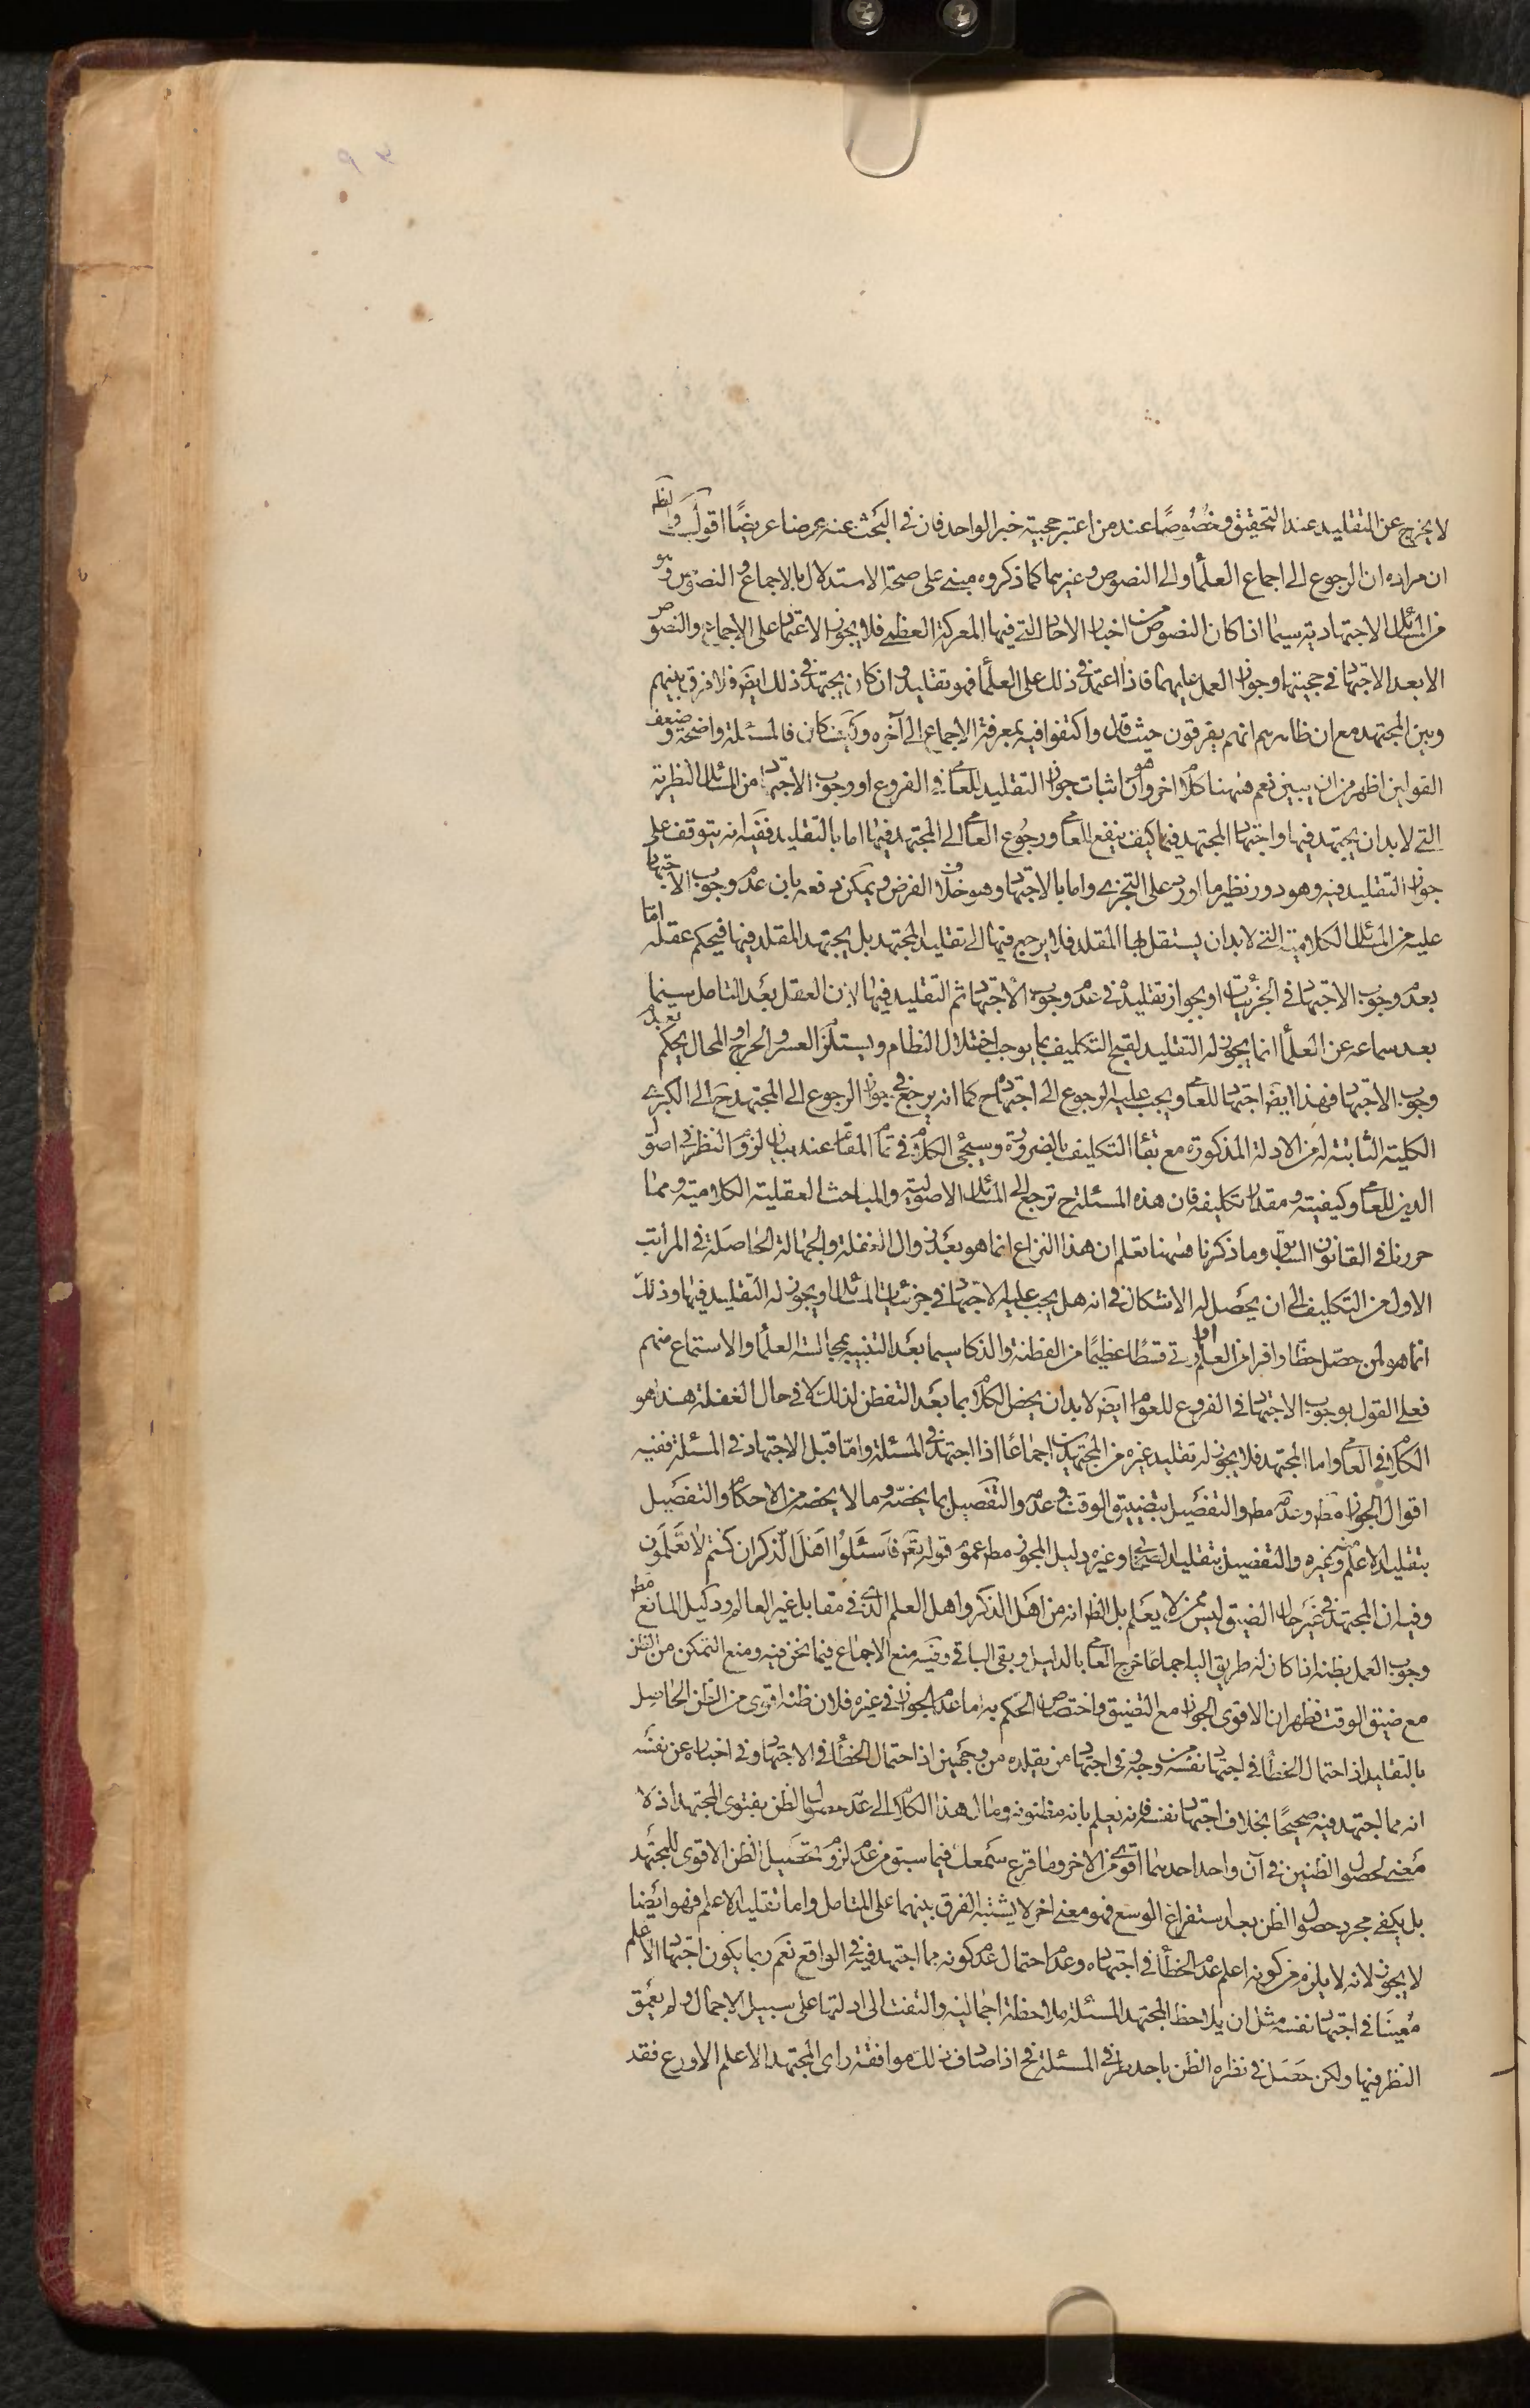 لا يخرج عن التقليد عند التحقيق وخصوصًا عند من اعتبر حجية خبر الواحد فان في البحث عنه عرضا عريضًا اقول والظ
ان مراده ان الرجوع الى اجماع العلما والى النصوص وغيرهما كما ذكروه مبنى على صحة الاستدلال بالاجماع والنصوص وهو
من المسائل الاجتهادية سيما اذا كان النصوص من اخبار الاحاد التى فيها المعركة العظمى فلا يجوز الاعتماد على الاجماع والنصوص
الا بعد الاجتهاد في حجيتها وجواز العمل عليهما فاذا اعتمد في ذلك على العلما فهو تقليد وان كان يجتهد في ذلك ايض فلا فرق بينهم
وبين المجتهد مع ان ظاهرهم انهم يفرقون حيث قال واكتفوا فيه بمعرفة الاجماع الى آخره وكيف كان فالمسئلة واضحة وضعف
القولين اظهر من ان يبين نعم ههنا كلام اخر وهو ان اثبات جواز التقليد للعامى في الفروع او وجوب الاجتهاد من المسائل النظرية
التى لا بد ان يجتهد فيها واجتهاد المجتهد فيها كيف ينفع للعامى ورجوع العامى الى المجتهد فيها اما بالتقليد ففيه انه يتوقف على
جواز التقليد فيه وهو دور نظير ما اورد على التجزى واما بالاجتهاد وهو خلاف الفرض ويمكن دفعه بان عدم وجوب الاجتهاد
عليه من المسائل الكلامية التى لا بد ان يستقل بها المقلد فلا يرجع فيها الى تقليد المجتهد بل يجتهد المقلد فيها فيحكم عقله اما
بعدم وجوب الاجتهاد في الجزئيات او بجواز تقليده في عدم وجوب الاجتهاد ثم التقليد فيها لان العقل بعد التامل سيما
بعد سماعه عن العلما انما يجوز له التقليد لقبح التكليف بما يوجب اختلال النظام ويستلزم العسر والحرج او المحال يحكم بعدم
وجوب الاجتهاد فهذا ايض اجتهاد للعامى ويجب عليه الرجوع الى اجتهاده ح كما انه يرجع في جواز الرجوع الى المجتهد ح الى الكبرى
الكلية الثابتة له من الادلة المذكورة مع بقاء التكليف بالضرورة وسيجئ الكلام في تمام المقام عند بيان لزوم النظر في اصول
الدين للعامى وكيفيته ومقدار تكليفه فان هذه المسئلة ح ترجع الى المسائل الاصولية والمباحث العقلية الكلامية ومما
حررنا في القانون السابق وما ذكرنا ههنا تعلم ان هذا النزاع انما هو بعد زوال الغفلة والجهالة الحاصلة في المراتب
الاول من التكليف الى ان يحصل له الاشكال في انه هل يجب عليه الاجتهاد في جزئيات المسائل او يجوز له التقليد فيها وذلك
انما هو لمن حصّل حظّا وافرا من العلم او اوتى قسطًا عظيمًا من الفطنة والذكا سيما بعد التنبيه بمجالسة العلما والاستماع منهم
فعلى القول بوجوب الاجتهاد في الفروع للعوام ايض لا بد ان يخص الكلام بما بعد التفطن لذلك لا في حال الغفلة هذا هو
الكلام في العامى واما المجتهد فلا يجوز له تقليد غيره من المجتهدين اجماعًا اذا اجتهد في المسئلة وامّا قبل الاجتهاد في المسئلة ففيه
اقوال الجواز مط وعدمه مط والتفصيل بتضييق الوقت وعدمه والتفصيل بما يخصّه وما لا يخصه من الاحكام والتفصيل
بتقليد الاعلم منه وغيره والتفصيل بتقليد الصحابى وغيره دليل المجوز مط عموم قوله تعَ فاسئلوا اهل الذكر ان كنتم لا تعلمون
وفيه ان المجتهد في غير حال الضيق ليس ممن لا يعلم بل الظ انه من اهل الذكر واهل العلم الذى في مقابل غير العالم ودليل المانع مط
وجوب العمل بظنه اذا كان له طريق اليه اجماعًا خرج العامى بالدليل وبقى الباقى وفيه منع الاجماع فيما نحن فيه ومنع التمكن من الظن
مع ضيق الوقت فظهر ان الاقوى الجواز مع التضيق واختصاص الحكم به اما عدم الجواز في غيره فلان ظنه اقوى من الظن الحاصل
بالتقليد اذ احتمال الخطأ في اجتهاد نفسه من وجه وفى اجتهاد من يقلده من وجهين اذ احتمال الخطأ في الاجتهاد وفى اخباره عن نفسه
انه مما اجتهد فيه صحيحًا بخلاف اجتهاد نفسه فانه يعلم بانه مظنونه ومال هذا الكلام الى عدم حصول الظن بفتوى المجتهد اذ لا
معنى لحصول الظنين في آن واحد احدهما اقوى من الاخر وما قرع سمعك فيما سبق من عدم لزوم تحصيل الظن الاقوى للمجتهد
بل يكفى مجرد حصول الظن بعد استفراغ الوسع فهو معنى اخر لا يشتبه الفرق بينهما على المتامل واما تقليد الاعلم فهو ايضًا
لا يجوز لانه لا يلزم من كونه اعلم عدم الخطأ في اجتهاده وعدم احتمال عدم كونه مما اجتهد فيه في الواقع نعم ربما يكون اجتهاد الاعلم
مُعينًا في اجتهاد نفسه مثل ان يلاحظ المجتهد المسئلة ملاحظة اجمالية والتفت الى ادلتها على سبيل الاجمال ولم يعمق
النظر فيها ولكن حصل في نظره الظن باحد طرفى المسئلة فح اذا صادف ذلك موافقة راى المجتهد الاعلم الاورع فقد